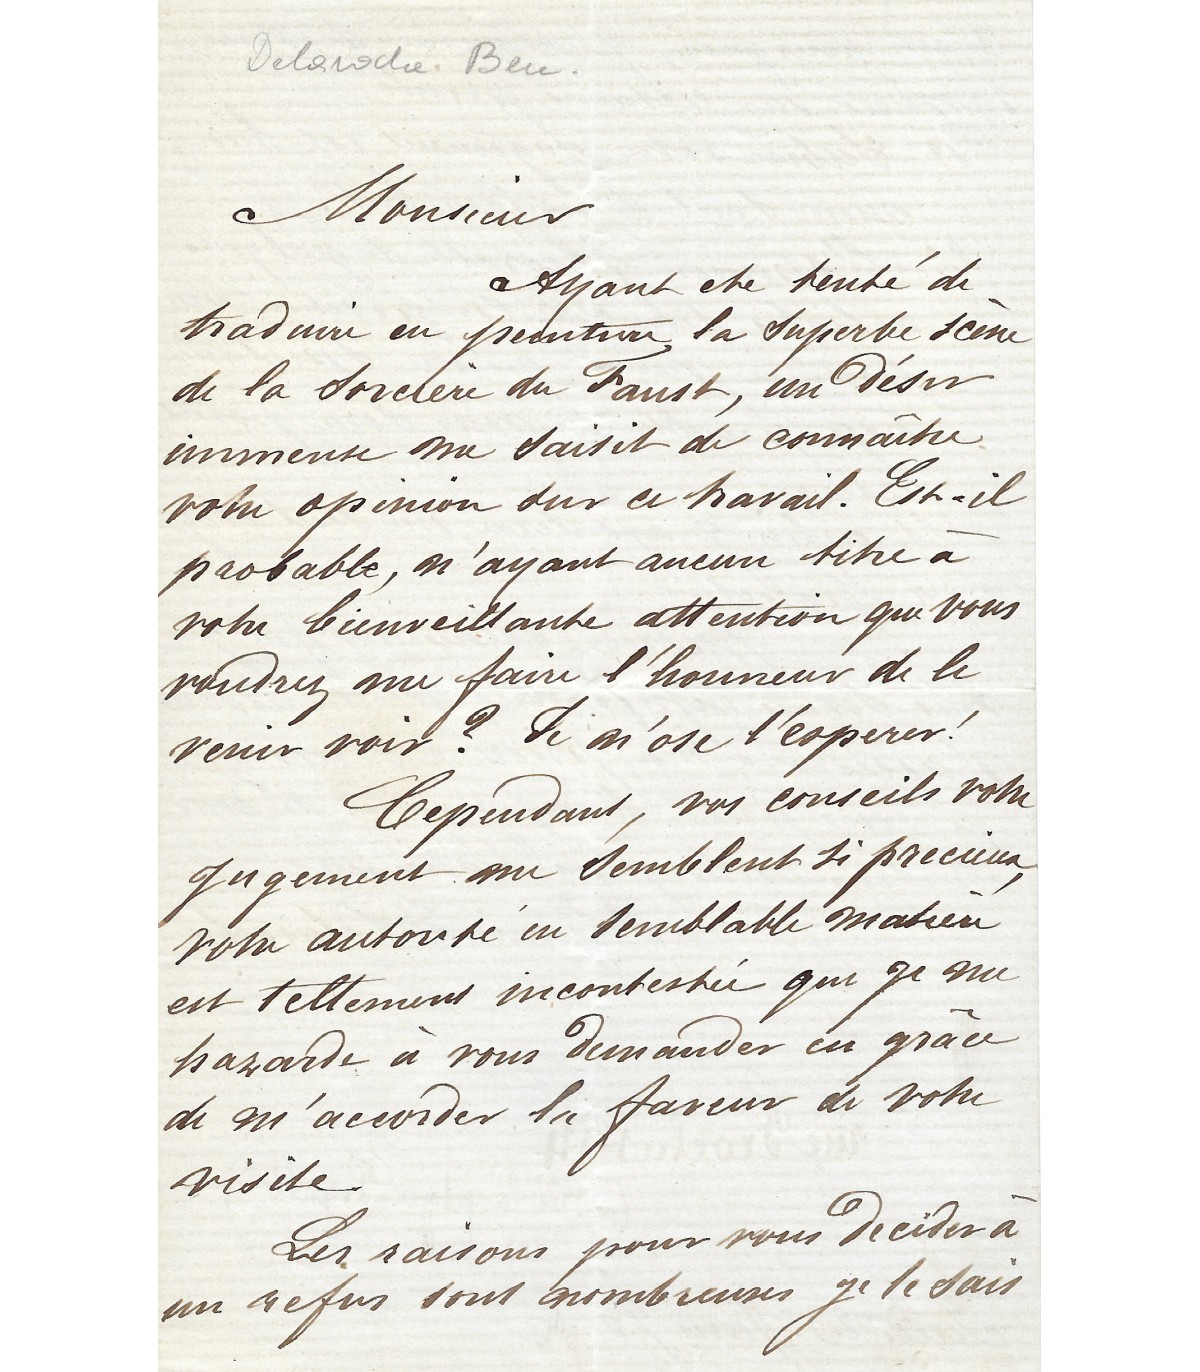 Delaroche. Ben.
Monsieur
Ayant ete tenté de
traduire en peinture la superbe scène
de la sorcière du Faust, un désir
immense me saisit de connaître
votre opinion sur ce travail. Est-il
probable, n'ayant aucun titre à
votre bienveillante attention que vous
voudrez me faire l'honneur de le
venir voir ? Je n'ose l'esperer !
Cependant, vos conseils votre
jugement me semblent si precieux,
votre autorité en semblable matière
est tellement incontestée que je me
hazarde à vous demander en grâce
de m'accorder la faveur de votre
visite.
Les raisons pour vous decider à
un refus sont nombreuses je le sais